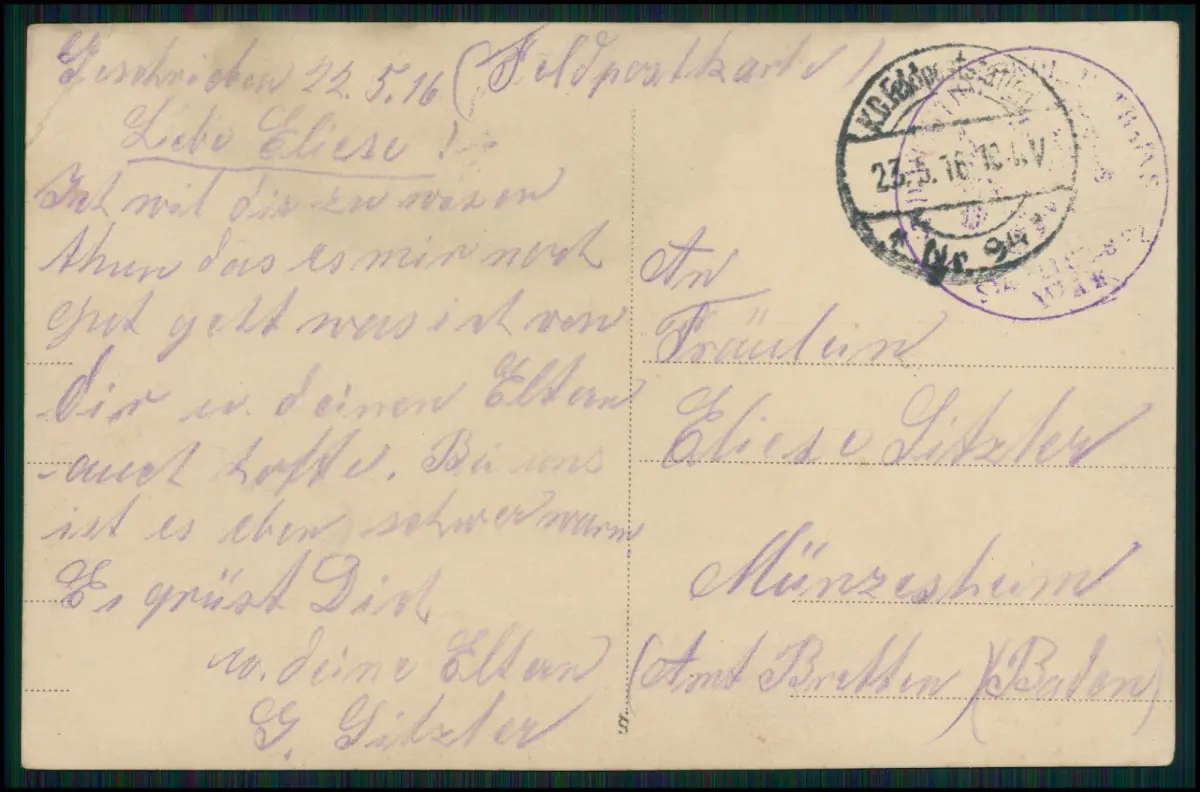 Geschrieben 22.5.16 (Feldpostkarte)
Liebe Eliese!
Ich wil dir zu wissen
thun das es mir noch
gut geht was ich von
dir u. deinen Eltern
auch hoffe. Bei uns
ist es eben schwer warm
Es grüst Dich
u. deine Eltern
G. Sitzler
K.D. Feldpoststation
23.5.16. 10-11 V
* Nr.
An
Fräulein
Eliese Sitzler
Münzesheim
(Amt Bretten) (Baden)